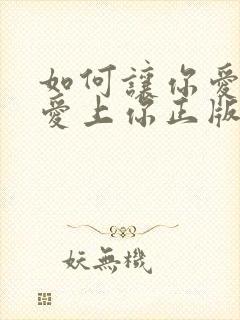 如何讓你愛
愛上你正版
妖無機